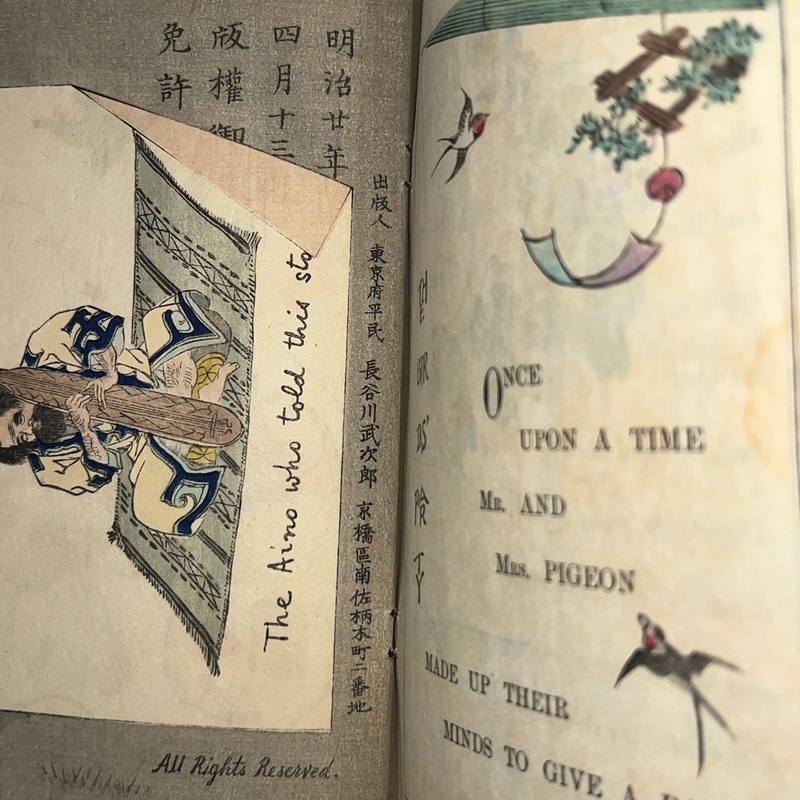 明治廿年
四月十三
版權御
免許
出版人 東京府平民 長谷川武次郎 京橋區南佐柄木町二番地
The Aino who told this sto
All Rights Reserved.
BIR
DS'
ONCE
UPON A TIME
MR. AND
MRS. PIGEON
MADE UP THEIR
MINDS TO GIVE A